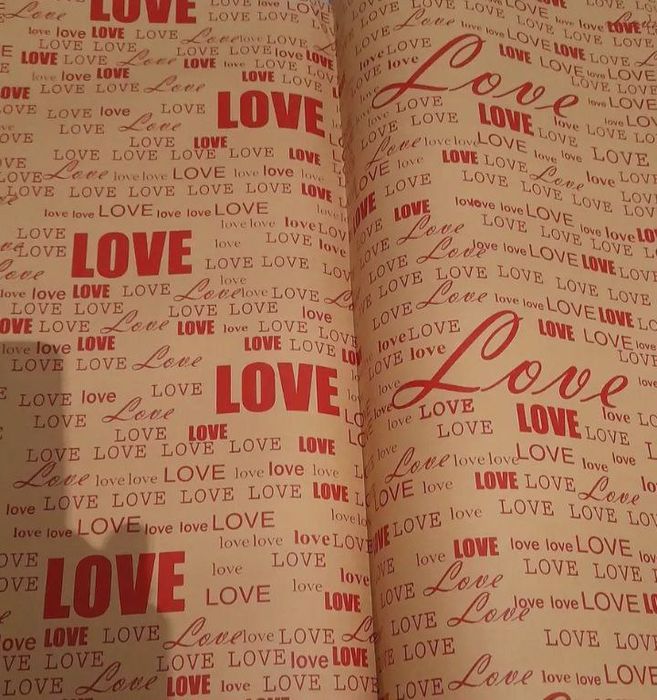 LOVE
Love love LOVE LOVE
love love LOVE LOVE Love love LOVE love
LOVE LOVE LOVE Love LOVE love LOVE
love love LOVE LOVE LOVE
LOVE LOVE LOVE Love LOVE
LOVE LOVE love LOVE
LOVE Love LOVE
LOVE LOVE
LOVE LOVE LOVE LOVE LOVE
LOVE Love love love LOVE love love love
LOVE LOVE LOVE LOVE LOVE LOVE
love love LOVE love love LOVE
LOVE love love love LOVE
LOVE LOVE love LOVE love
Love LOVE LOVE LOVE
love
love love LOVE LOVE Love love LOVE
LOVE LOVE LOVE LOVE love
LOVE LOVE Love LOVE love LOVE LOVE
love love LOVE LOVE LOVE
LOVE LOVE Love
LOVE love LOVE LOVE
LOVE Love
LOVE LOVE
LOVE LOVE LOVE LOVE LOVE
Love love love LOVE love love love
LOVE LOVE LOVE LOVE LOVE LOVE
love love LOVE love love LOVE
love love love LOVE
LOVE love LOVE love
LOVE LOVE LOVE love LOVE
love LOVE LOVE Love love LOVE
LOVE LOVE LOVE LOVE love LOVE
LOVE LOVE Love LOVE love LOVE
Love love love LOVE
love LOVE LOVE LOVE love LOVE
love love Love LOVE love LOVE
LOVE love LOVE
LOVE LOVE LOVE love LOVE LOVE
Love love love LOVE love love
love LOVE LOVE LOVE LOVE
LOVE LOVE Love
LOVE love LOVE LOVE
LOVE Love LOVE LOVE LOVE
LOVE Love love love LOVE love love LOVE
LOVE LOVE LOVE LOVE LOVE LOVE
LOVE Love love love LOVE LOVE
love LOVE LOVE LOVE love
LOVE love Love LOVE
love love
LOVE LOVE LOVE LOVE
love Love love love LOVE love
LOVE love LOVE LOVE Love
LOVE love LOVE LOVE LOVE
love LOVE love love LOVE
LOVE Love LOVE LOVE
LOVE Love love love LOVE
LOVE LOVE LOVE
LOVE Love LOVE